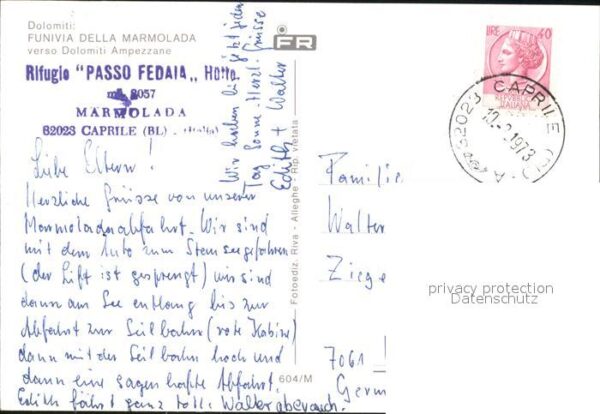 Dolomiti:
FUNIVIA DELLA MARMOLADA
verso Dolomiti Ampezzane
Rifugio "PASSO FEDAIA" Hotte.
m. 2057
MARMOLADA
32023 CAPRILE (BL) - Italia
Liebe Eltern!
Herzliche Grüsse von unserer
Marmoladaabfahrt. Wir sind
mit dem Auto zum Stausee gefahren
(der Lift ist gesprengt) wir sind
dann am See entlang bis zur
Abfahrt zur Seilbahn (rote Kabine)
dann mit der Seilbahn hoch und
dann eine sagenhafte Abfahrt.
Edith fährt ganz toll. Walter aber auch.
Wir haben bis jetzt jeden
Tag Sonne. Herzl. Grüsse
Edith + Walter
Fotoediz. Riva - Alleghe - Rip. vietata
604/M
FR
LIRE 40
REPUBBLICA
ITALIANA
32023 CAPRILE
1973
Familie
Walter
Ziege
7061
Germ
privacy protection
Datenschutz